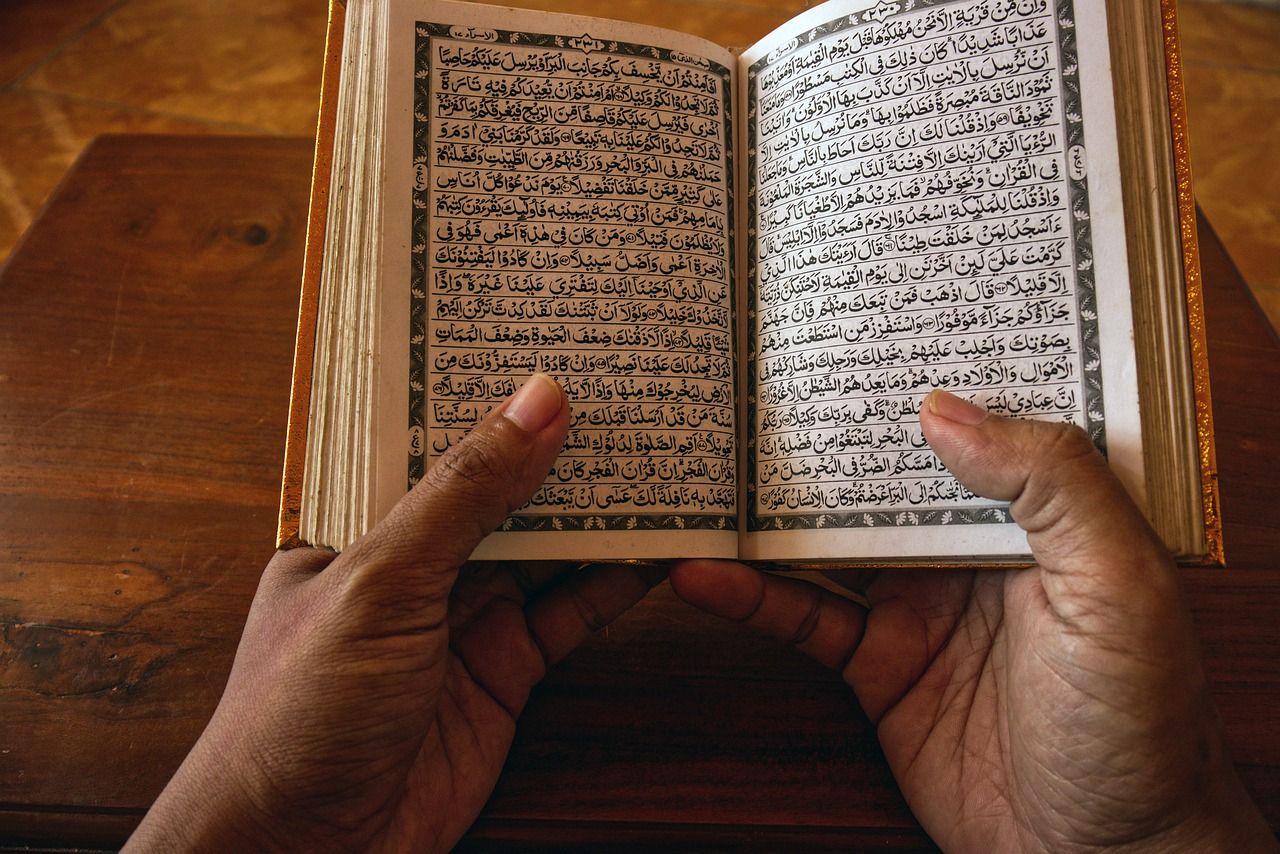 الاسرآء ١٧
٢٣٠
وَاِنْ مِّنْ قَرْيَةٍ اِلَّا نَحْنُ مُهْلِكُوْهَا قَبْلَ يَوْمِ الْقِيٰمَةِ اَوْ مُعَذِّبُوْهَا
عَذَابًا شَدِيْدًا ؕ كَانَ ذٰلِكَ فِى الْكِتٰبِ مَسْطُوْرًا ٥٨ وَمَا مَنَعَنَآ
اَنْ نُّرْسِلَ بِالْاٰيٰتِ اِلَّآ اَنْ كَذَّبَ بِهَا الْاَوَّلُوْنَ ؕ وَاٰتَيْنَا
ثَمُوْدَ النَّاقَةَ مُبْصِرَةً فَظَلَمُوْا بِهَا ؕ وَمَا نُرْسِلُ بِالْاٰيٰتِ اِلَّا
تَخْوِيْفًا ٥٩ وَاِذْ قُلْنَا لَكَ اِنَّ رَبَّكَ اَحَاطَ بِالنَّاسِ ؕ وَمَا جَعَلْنَا
الرُّءْيَا الَّتِيْٓ اَرَيْنٰكَ اِلَّا فِتْنَةً لِّلنَّاسِ وَالشَّجَرَةَ الْمَلْعُوْنَةَ
فِى الْقُرْاٰنِ ؕ وَنُخَوِّفُهُمْ ۙ فَمَا يَزِيْدُهُمْ اِلَّا طُغْيَانًا كَبِيْرًا ٦٠
وَاِذْ قُلْنَا لِلْمَلٰٓئِكَةِ اسْجُدُوْا لِاٰدَمَ فَسَجَدُوْٓا اِلَّآ اِبْلِيْسَ ؕ قَالَ
ءَاَسْجُدُ لِمَنْ خَلَقْتَ طِيْنًا ٦١ قَالَ اَرَءَيْتَكَ هٰذَا الَّذِيْ
كَرَّمْتَ عَلَيَّ ؗ لَئِنْ اَخَّرْتَنِ اِلٰى يَوْمِ الْقِيٰمَةِ لَاَحْتَنِكَنَّ ذُرِّيَّتَهٗٓ
اِلَّا قَلِيْلًا ٦٢ قَالَ اذْهَبْ فَمَنْ تَبِعَكَ مِنْهُمْ فَاِنَّ جَهَنَّمَ
جَزَآؤُكُمْ جَزَآءً مَّوْفُوْرًا ٦٣ وَاسْتَفْزِزْ مَنِ اسْتَطَعْتَ مِنْهُمْ
بِصَوْتِكَ وَاَجْلِبْ عَلَيْهِمْ بِخَيْلِكَ وَرَجِلِكَ وَشَارِكْهُمْ فِى
الْاَمْوَالِ وَالْاَوْلَادِ وَعِدْهُمْ ؕ وَمَا يَعِدُهُمُ الشَّيْطٰنُ اِلَّا غُرُوْرًا ٦٤
اِنَّ عِبَادِيْ لَيْسَ سُلْطٰنٌ ؕ وَكَفٰى بِرَبِّكَ وَكِيْلًا ٦٥ رَبُّكُمُ
فِى الْبَحْرِ لِتَبْتَغُوْا مِنْ فَضْلِهٖ ؕ اِنَّهٗ
وَاِذَا مَسَّكُمُ الضُّرُّ فِى الْبَحْرِ ضَلَّ مَنْ
نَجّٰىكُمْ اِلَى الْبَرِّ اَعْرَضْتُمْ ؕ وَكَانَ الْاِنْسَانُ كَفُوْرًا ٦٧
سبحن الذی ١٥
٢٣١
الاسرآء ١٧
اَفَاَمِنْتُمْ اَنْ يَّخْسِفَ بِكُمْ جَانِبَ الْبَرِّ اَوْ يُرْسِلَ عَلَيْكُمْ حَاصِبًا
ثُمَّ لَا تَجِدُوْا لَكُمْ وَكِيْلًا ٦٨ اَمْ اَمِنْتُمْ اَنْ يُّعِيْدَكُمْ فِيْهِ تَارَةً
اُخْرٰى فَيُرْسِلَ عَلَيْكُمْ قَاصِفًا مِّنَ الرِّيْحِ فَيُغْرِقَكُمْ بِمَا كَفَرْتُمْ ۙ
ثُمَّ لَا تَجِدُوْا لَكُمْ عَلَيْنَا بِهٖ تَبِيْعًا ٦٩ وَلَقَدْ كَرَّمْنَا بَنِيْٓ اٰدَمَ وَ
حَمَلْنٰهُمْ فِى الْبَرِّ وَالْبَحْرِ وَرَزَقْنٰهُمْ مِّنَ الطَّيِّبٰتِ وَفَضَّلْنٰهُمْ
عَلٰى كَثِيْرٍ مِّمَّنْ خَلَقْنَا تَفْضِيْلًا ٧٠ يَوْمَ نَدْعُوْا كُلَّ اُنَاسٍۭ
بِاِمَامِهِمْ ۚ فَمَنْ اُوْتِيَ كِتٰبَهٗ بِيَمِيْنِهٖ فَاُولٰٓئِكَ يَقْرَءُوْنَ كِتٰبَهُمْ
وَلَا يُظْلَمُوْنَ فَتِيْلًا ٧١ وَمَنْ كَانَ فِيْ هٰذِهٖٓ اَعْمٰى فَهُوَ فِى
الْاٰخِرَةِ اَعْمٰى وَاَضَلُّ سَبِيْلًا ٧٢ وَاِنْ كَادُوْا لَيَفْتِنُوْنَكَ
عَنِ الَّذِيْٓ اَوْحَيْنَآ اِلَيْكَ لِتَفْتَرِيَ عَلَيْنَا غَيْرَهٗ ۖ وَاِذًا
لَّاتَّخَذُوْكَ خَلِيْلًا ٧٣ وَلَوْلَآ اَنْ ثَبَّتْنٰكَ لَقَدْ كِدْتَّ تَرْكَنُ اِلَيْهِمْ
شَيْئًا قَلِيْلًا ٧٤ اِذًا لَّاَذَقْنٰكَ ضِعْفَ الْحَيٰوةِ وَضِعْفَ الْمَمَاتِ
ثُمَّ لَا تَجِدُ لَكَ عَلَيْنَا نَصِيْرًا ٧٥ وَاِنْ كَادُوْا لَيَسْتَفِزُّوْنَكَ مِنَ
الْاَرْضِ لِيُخْرِجُوْكَ مِنْهَا وَاِذًا لَّا خِلٰفَكَ اِلَّا قَلِيْلًا ٧٦
سُنَّةَ مَنْ قَدْ اَرْسَلْنَا قَبْلَكَ مِنْ لِسُنَّتِنَا
تَحْوِيْلًا ٧٧ اَقِمِ الصَّلٰوةَ لِدُلُوْكِ الشَّمْسِ
وَقُرْاٰنَ الْفَجْرِ ؕ اِنَّ قُرْاٰنَ الْفَجْرِ كَانَ
فَتَهَجَّدْ بِهٖ نَافِلَةً لَّكَ ۖ عَسٰٓى اَنْ يَّبْعَثَكَ